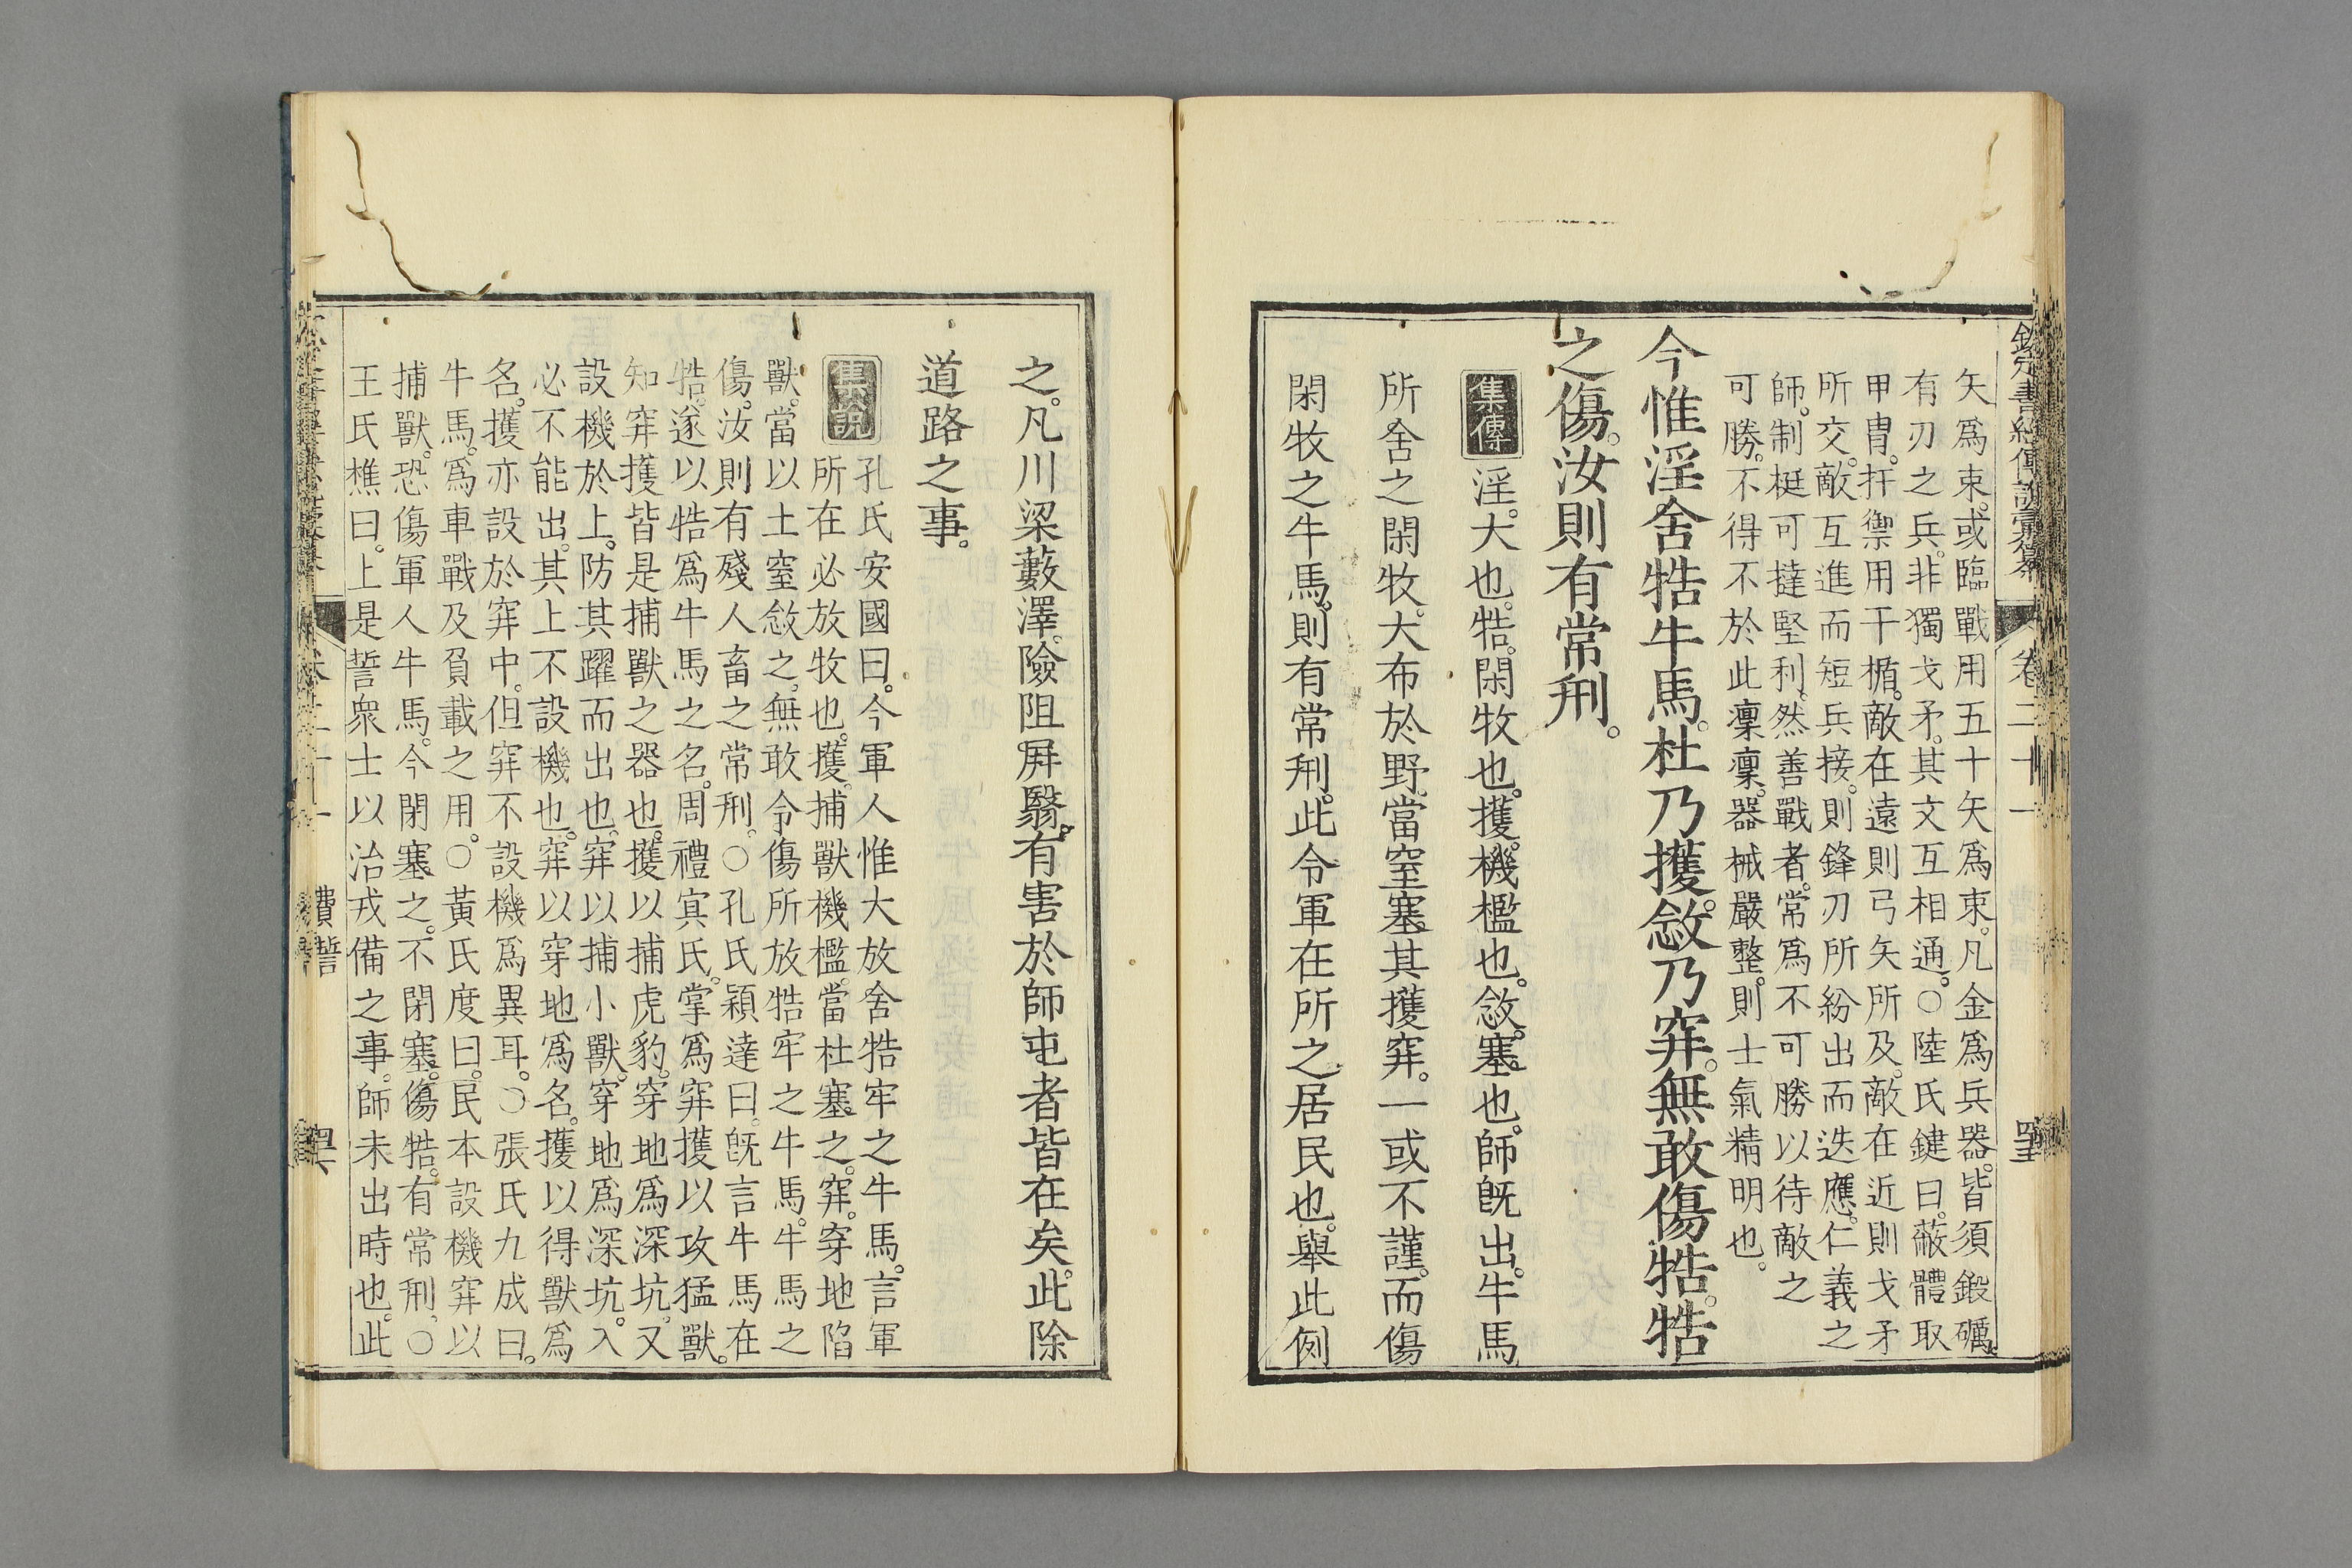 欽定書經傳說彙纂 卷二十一
矢爲束。或臨戰用五十矢爲束。凡金爲兵器。皆須鍛礪。
有刃之兵。非獨戈矛。其文互相通。○陸氏鍵曰。蔽體取
甲冑。扞禦用干楯。敵在遠則弓矢所及。敵在近則戈矛
所交。敵互進而短兵接。則鋒刃所紛出而迭應。仁義之
師。制梃可撻堅利。然善戰者。常爲不可勝以待敵之
可勝。不得不於此凜凜。器械嚴整。則士氣精明也。
今惟淫舍牿牛馬。杜乃擭。敜乃穽。無敢傷牿。牿
之傷。汝則有常刑。
集傳 淫。大也。牿。閑牧也。擭。機檻也。敜。塞也。師旣出。牛馬
所舍之閑牧。大布於野。當窒塞其擭穽。一或不謹。而傷
閑牧之牛馬。則有常刑。此令軍在所之居民也。舉此例
之。凡川梁藪澤。險阻屛翳。有害於師屯者皆在矣。此除
道路之事。
集說 孔氏安國曰。今軍人惟大放舍牿牢之牛馬。言軍
所在必放牧也。擭。捕獸機檻。當杜塞之。穽。穿地陷
獸。當以土窒敜之。無敢令傷所放牿牢之牛馬。牛馬之
傷。汝則有殘人畜之常刑。○孔氏穎達曰。旣言牛馬在
牿。遂以牿爲牛馬之名。周禮冥氏。掌爲穽擭以攻猛獸。
知穽擭皆是捕獸之器也。擭以捕虎豹。穿地爲深坑。又
設機於上。防其躍而出也。穽以捕小獸。穿地爲深坑。入
必不能出。其上不設機也。穽以穿地爲名。擭以得獸爲
名。擭亦設於穽中。但穽不設機爲異耳。○張氏九成曰。
牛馬。爲車戰及負載之用。○黃氏度曰。民本設機穽以
捕獸。恐傷軍人牛馬。今閉塞之。不閉塞。傷牿。有常刑。○
王氏樵曰。上是誓衆士以治戎備之事。師未出時也。此
卷二十一 費誓